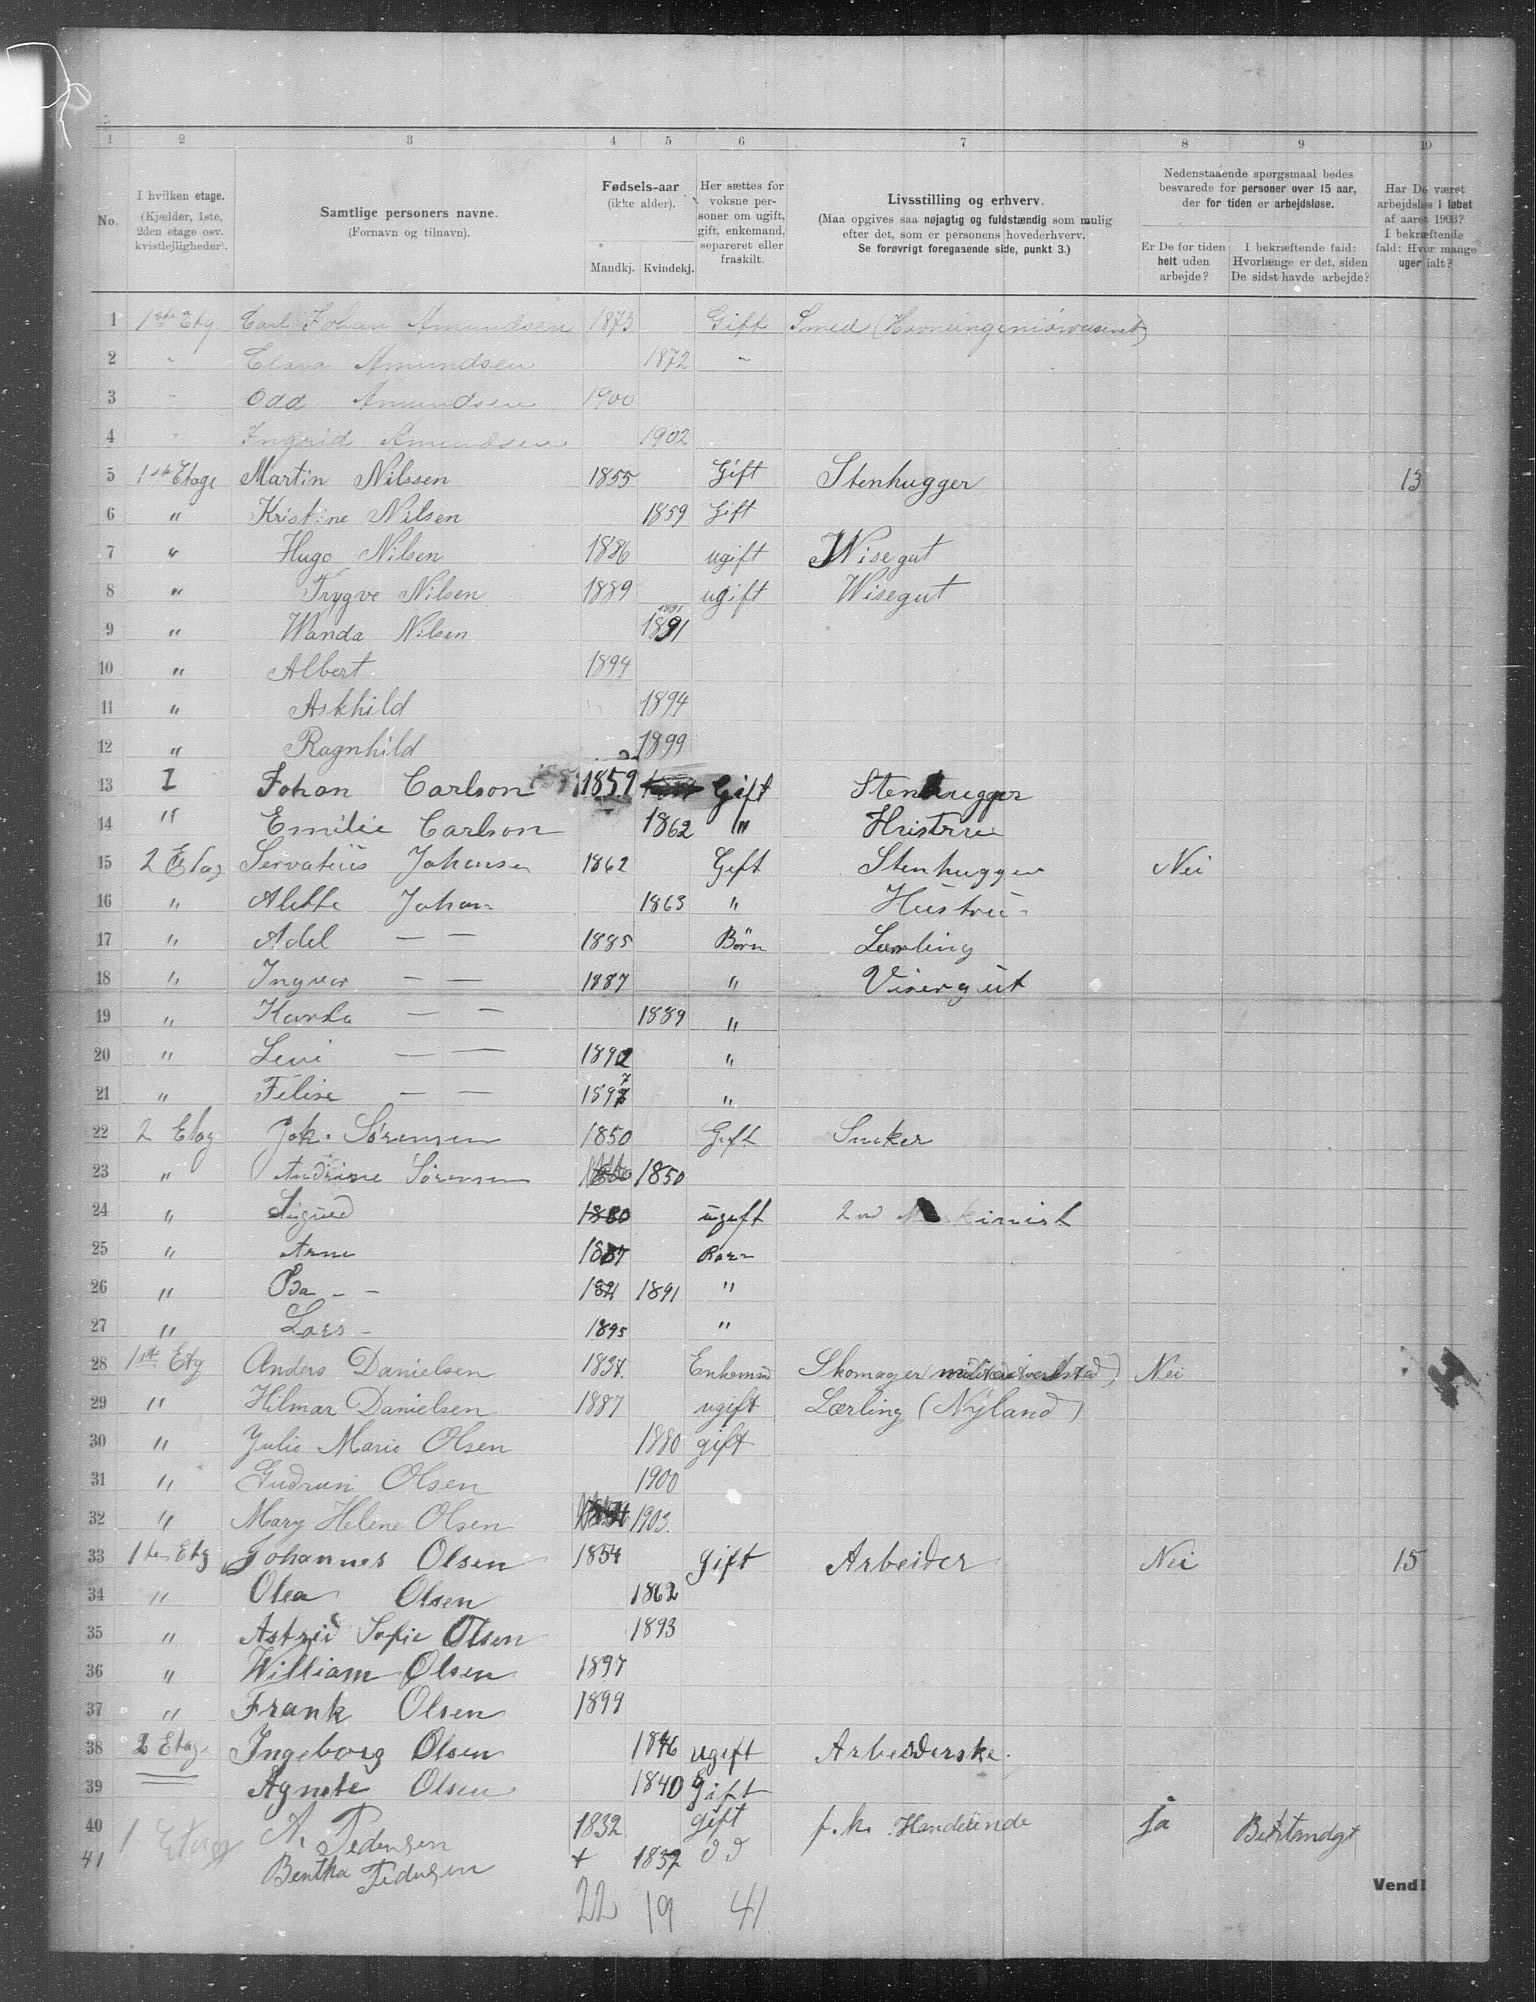 1 2 3 4 5 6 7 8 9 10
No.
I hvilken etage.
(Kjælder, 1ste,
2den etage osv.
kvistlejligheder).
Samtlige personers navne.
(Fornavn og tilnavn).
Fødsels-aar
(ikke alder).
Mandkj. Kvindekj.
Her sættes for
voksne per-
soner om ugift,
gift, enkemand,
separeret eller
fraskilt.
Livsstilling og erhverv.
(Maa opgives saa nøjagtig og fuldstændig som mulig
efter det, som er personens hovederhverv.
Se forøvrigt foregaaende side, punkt 3.)
Nedenstaaende spørgsmaal bedes
besvarede for personer over 15 aar,
der for tiden er arbejdsløse.
Er De for tiden
helt uden
arbejde?
I bekræftende fald:
Hvorlænge er det, siden
De sidst havde arbejde?
Har De været
arbejdsløs i løbet
af aaret 1903?
I bekræftende
fald: Hvor mange
uger ialt?
1 1ste Etg. Carl Johan Amundsen 1873 Gift Smed (Havneingeniørvæsenet)
2 " Clara Amundsen 1872 "
3 " Odd Amundsen 1900
4 " Ingrid Amundsen 1902
5 1ste Etage Martin Nilssen 1855 Gift Stenhugger 13
6 " Kristine Nilsen 1859 Gift
7 " Hugo Nilsen 1886 ugift Wisegut
8 " Trygve Nilsen 1889 ugift Wisegut
9 " Wanda Nilsen 1891 1891
10 " Albert 1894
11 " Askhild 1894
12 " Ragnhild 1899
13 I Johan Carlson 1859 Gift Stenhugger
14 " Emilie Carlson 1862 " Hustrue
15 2 Etag Servatius Johansen 1862 Gift Stenhugger Nei
16 " Alette Johan 1863 " Hustru
17 " Adel — — 1885 Børn Lærling
18 " Ingvar — — 1887 " Visergut
19 " Karla — — 1889 "
20 " Levi — — 1892 "
21 " Felise — — 1897 7 "
22 2 Etag Joh. Sørensen 1850 Gift Sneker
23 " Andrine Sørensen 1850
24 " Sigurd 1880 ugift 2nd Maskinist
25 " Arne 1887 Børn
26 " Oda - - 1891 "
27 " Lars - 1895 "
28 1st Etg Anders Danielsen 1837. Enkemand Skomager (militærtverkstad) Nei
29 " Hilmar Danielsen 1887 ugift Lærling (Nyland)
30 " Julie Marie Olsen 1880 gift
31 " Gudrun Olsen 1900
32 " Mary Helene Olsen 1903.
33 1ste Etg Johannes Olsen 1854 gift Arbeider Nei 15
34 " Olea Olsen 1862
35 " Astrid Sofie Olsen 1893
36 " William Olsen 1897
37 " Frank Olsen 1899
38 2 Etage Ingeborg Olsen 1876 ugift Arbeiderske.
39 Agnete Olsen 1840 Gift
40 1 Etage A. Pedersen 1832 gift f.h. Handelende ja
41 Bentha Pedersen + 1837 dd
22 19 41
Vend!